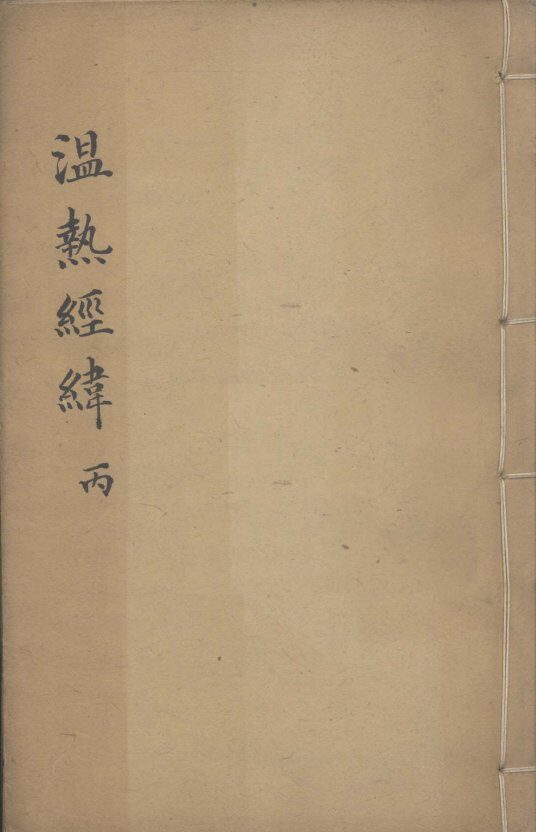 温熱經緯 丙